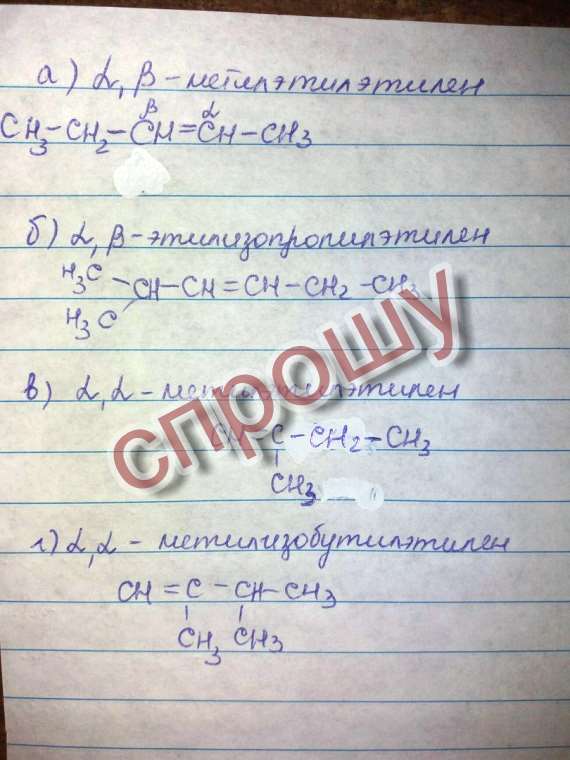 а) α, β – метилэтилэтилен
β α
CH3 – CH2 – CH = CH – CH3
б) α, β – этилизопропилэтилен
H3C
CH – CH = CH – CH2 – CH3
H3C
спрошу
в) α, α – метилэтилэтилен
CH C – CH2 – CH3
CH3
г) α, α – метилизобутилэтилен
CH = C – CH – CH3
CH3 CH3